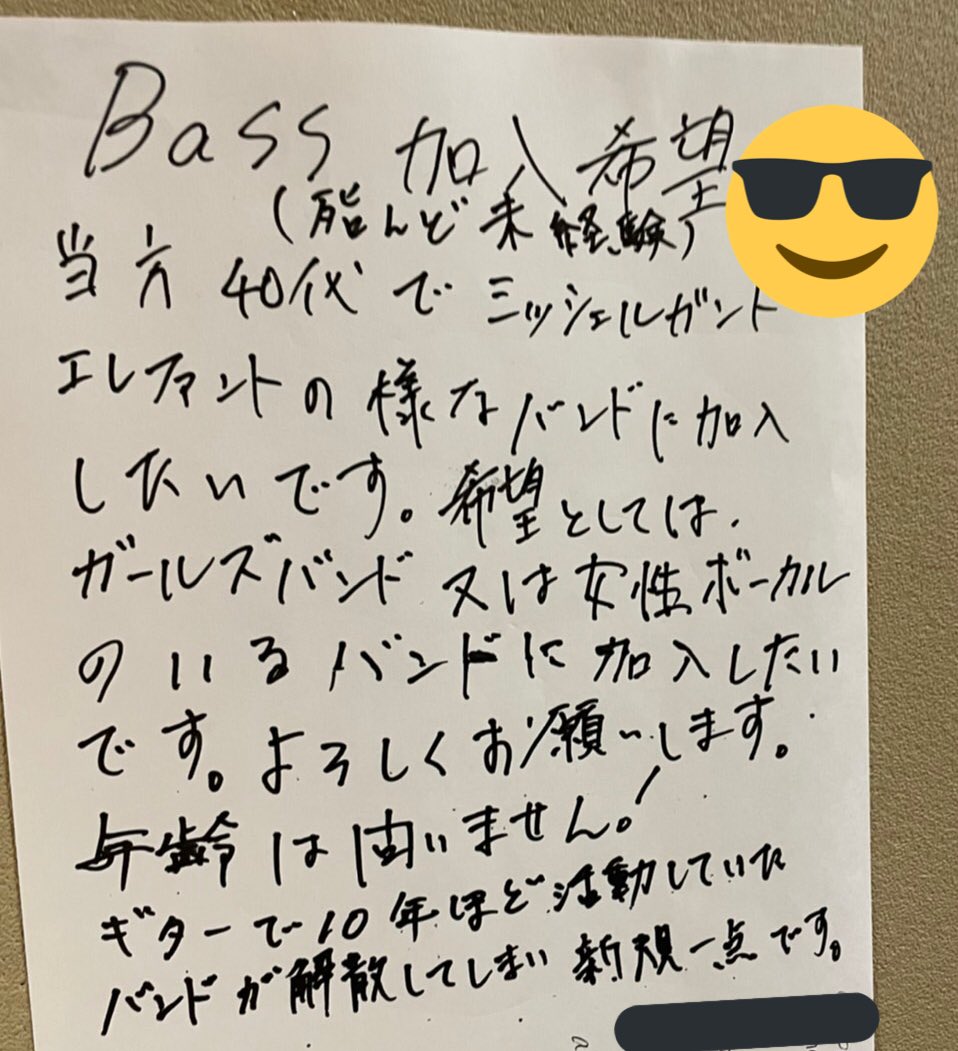 Bass 加入希望
(殆んど未経験)
当方40代でミッシェルガント
エレファントの様なバンドに加入
したいです。希望としては、
ガールズバンド又は女性ボーカル
のいるバンドに加入したい
です。よろしくお願いします。
年齢は問いません!
ギターで10年ほど活動していた
バンドが解散してしまい新規一点です。